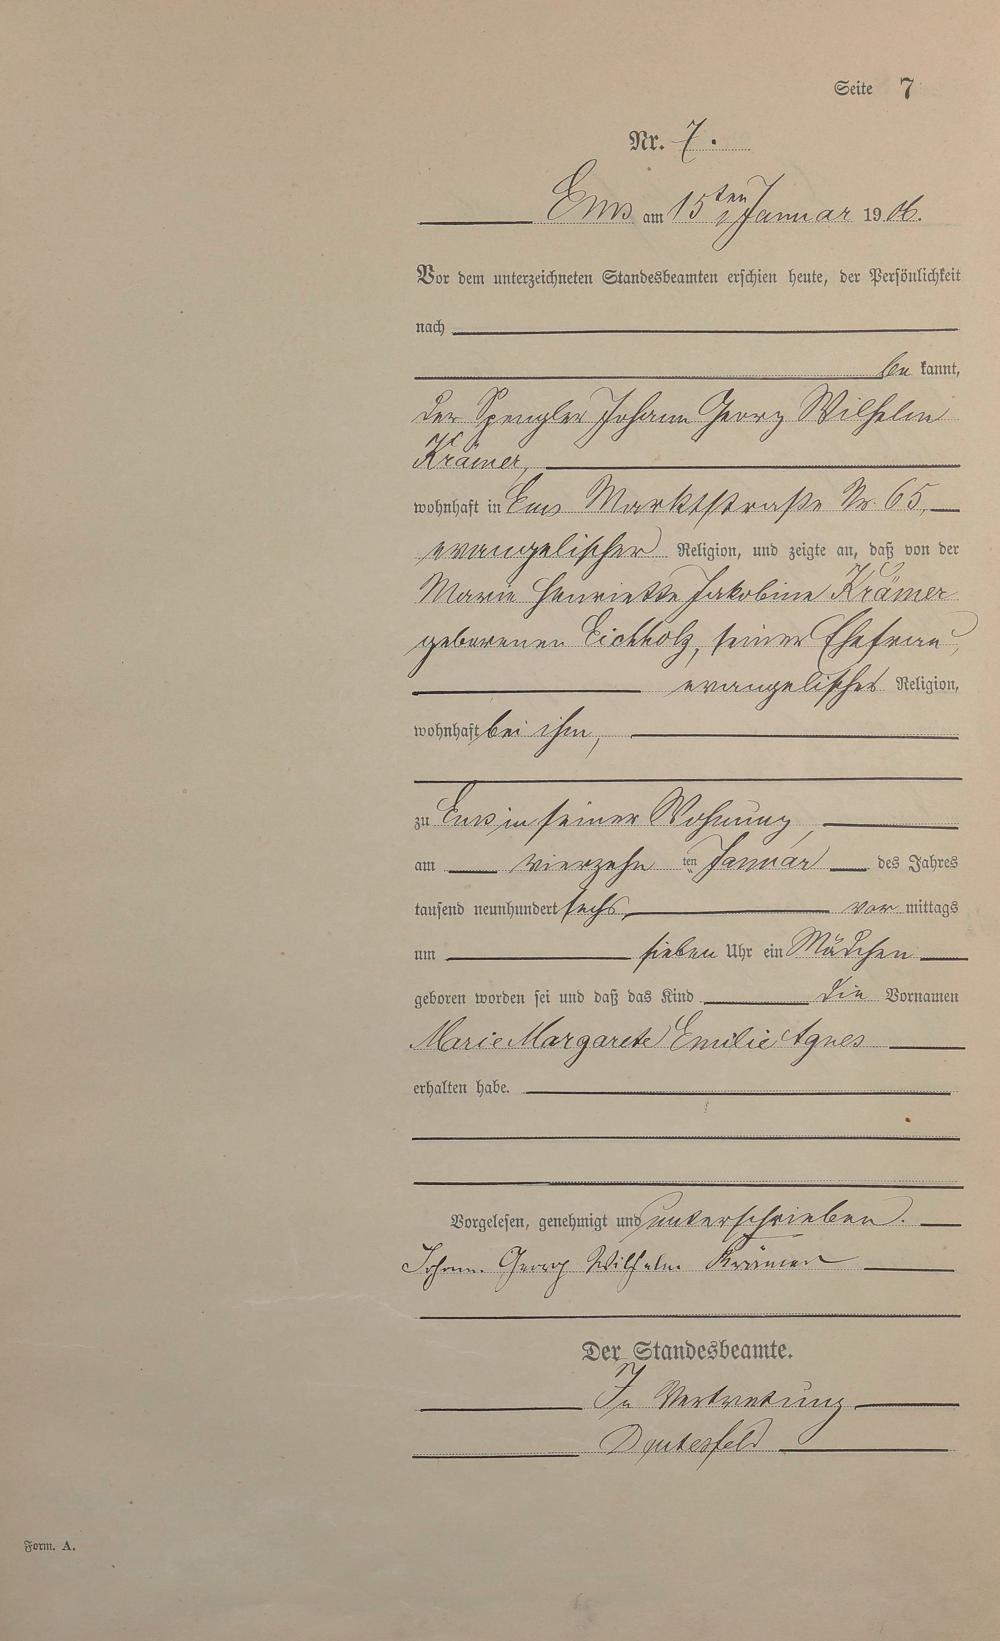 Seite 7
Nr. 7.
Ems am 15ten Januar 1906.
Vor dem unterzeichneten Standesbeamten erschien heute, der Persönlichkeit
nach
be kannt,
der Spengler Johann Georg Wilhelm
Krämer,
wohnhaft in Ems Marktstraße Nr. 65,
evangelischer Religion, und zeigte an, daß von der
Marie Henriette Jakobine Krämer
geborenen Eichholz, seiner Ehefrau,
evangelischer Religion,
wohnhaft bei ihm,
zu Ems in seiner Wohnung,
am vierzehn ten Januar des Jahres
tausend neunhundert sechs, vor mittags
um sieben Uhr ein Mädchen
geboren worden sei und daß das Kind die Vornamen
Marie Margarete Emilie Agnes
erhalten habe.
Vorgelesen, genehmigt und unterschrieben.
Johann Georg Wilhelm Krämer
Der Standesbeamte.
In Vertretung
Form. A.